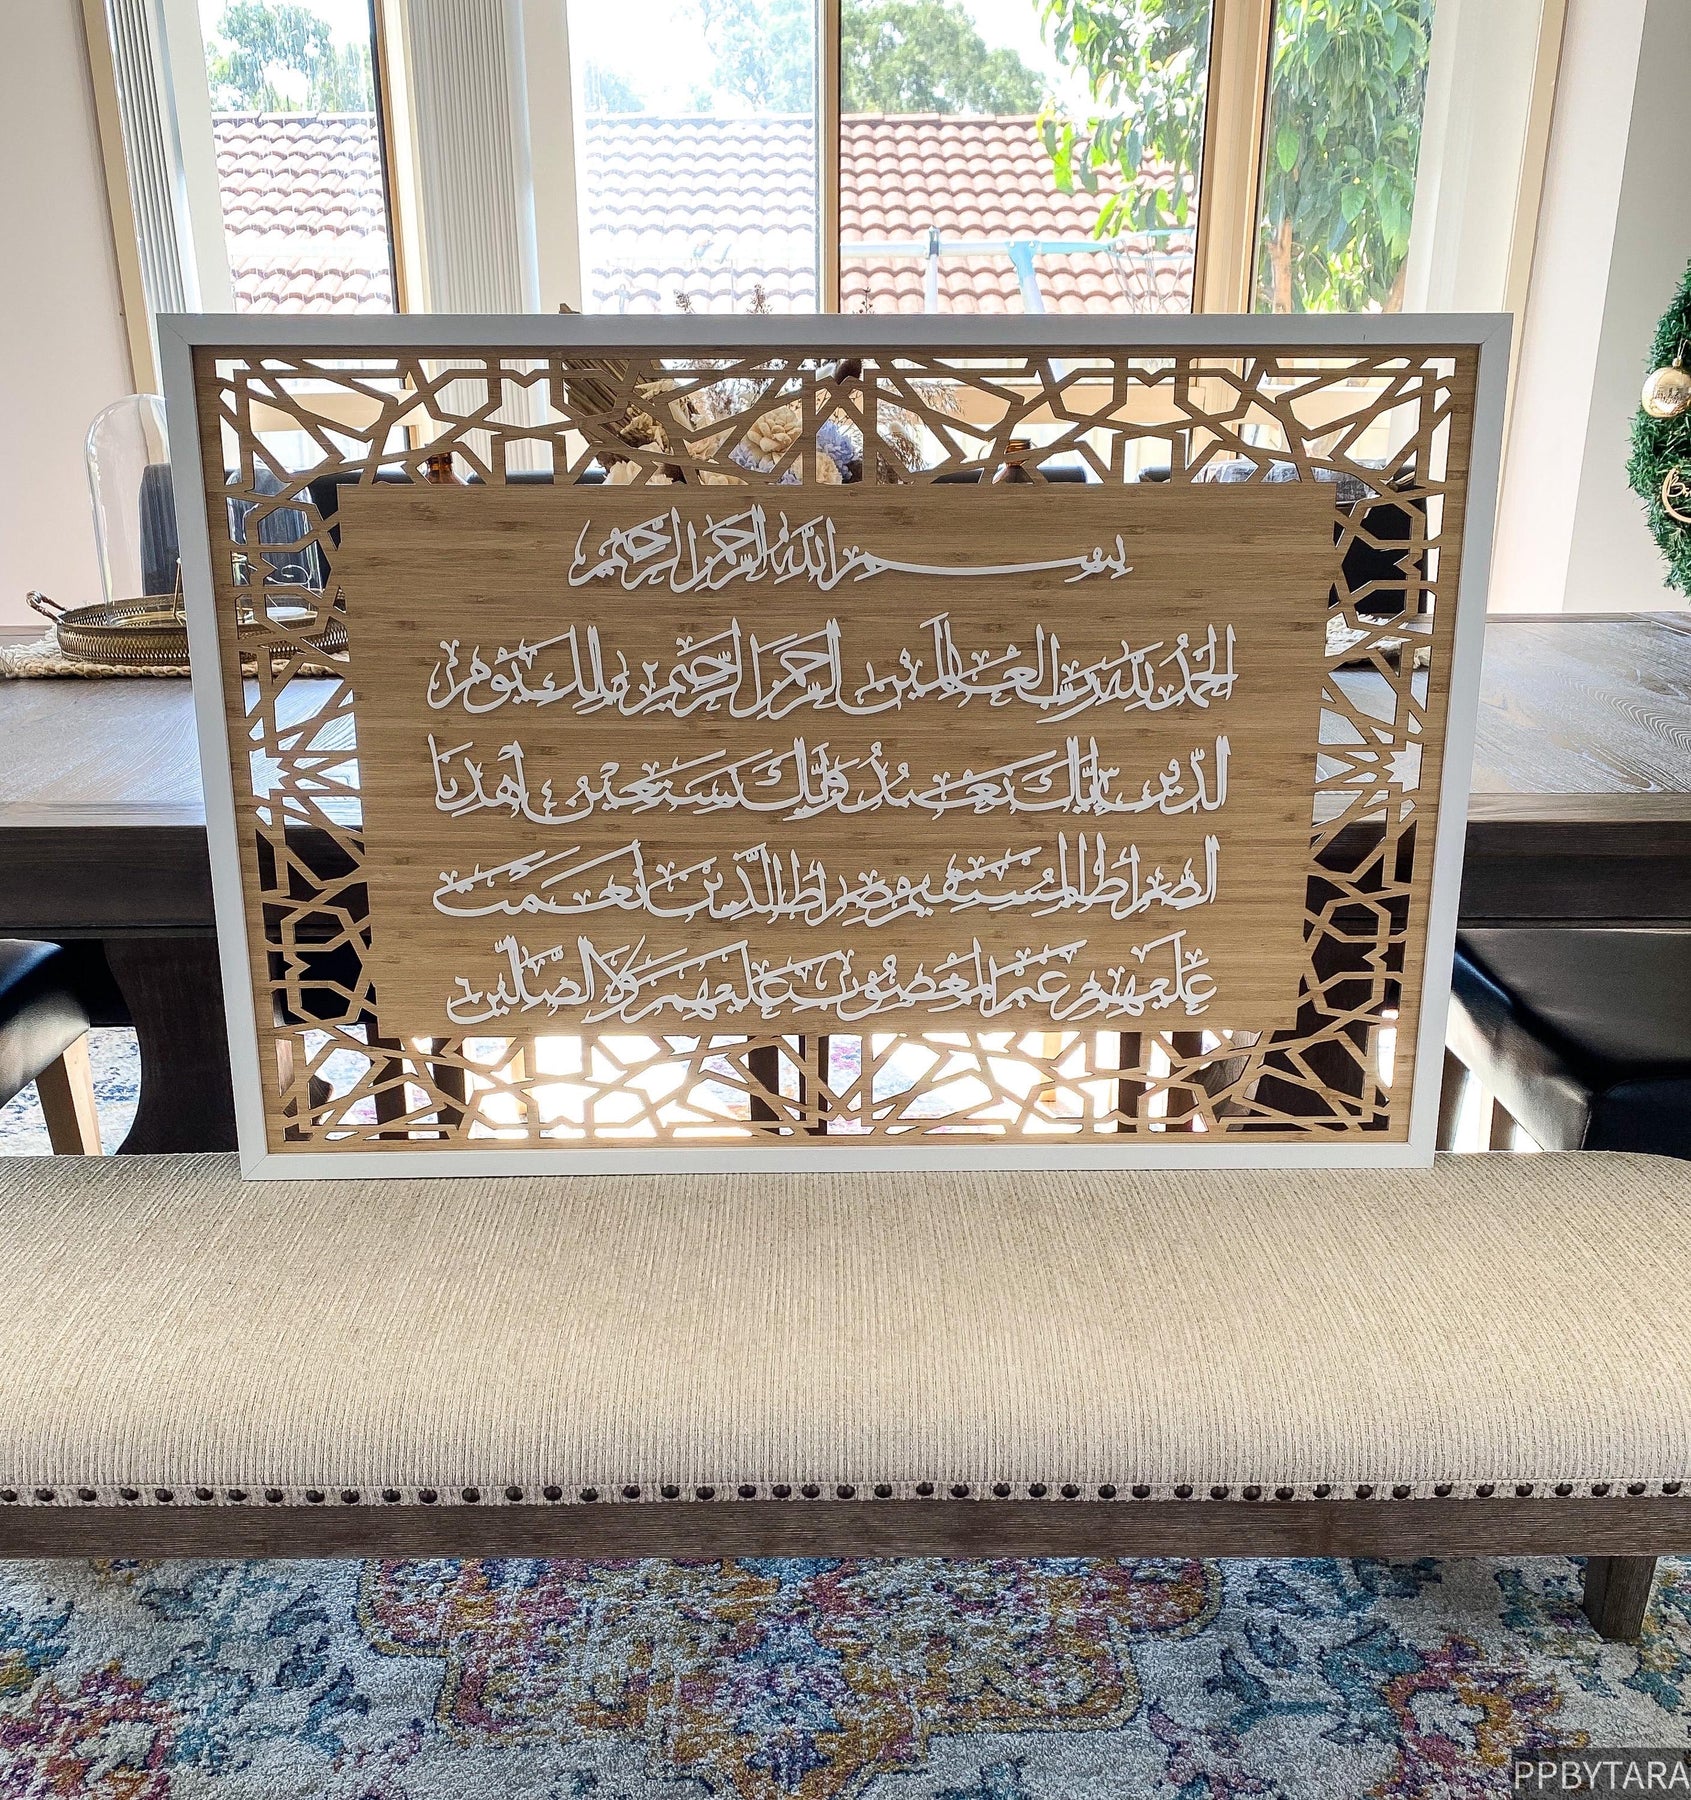 بسم الله الرحمن الرحيم
الحمد لله رب العالمين الرحمن الرحيم مالك يوم
الدين إياك نعبد وإياك نستعين اهدنا
الصراط المستقيم صراط الذين أنعمت
عليهم غير المغضوب عليهم ولا الضالين
PPBYTARA